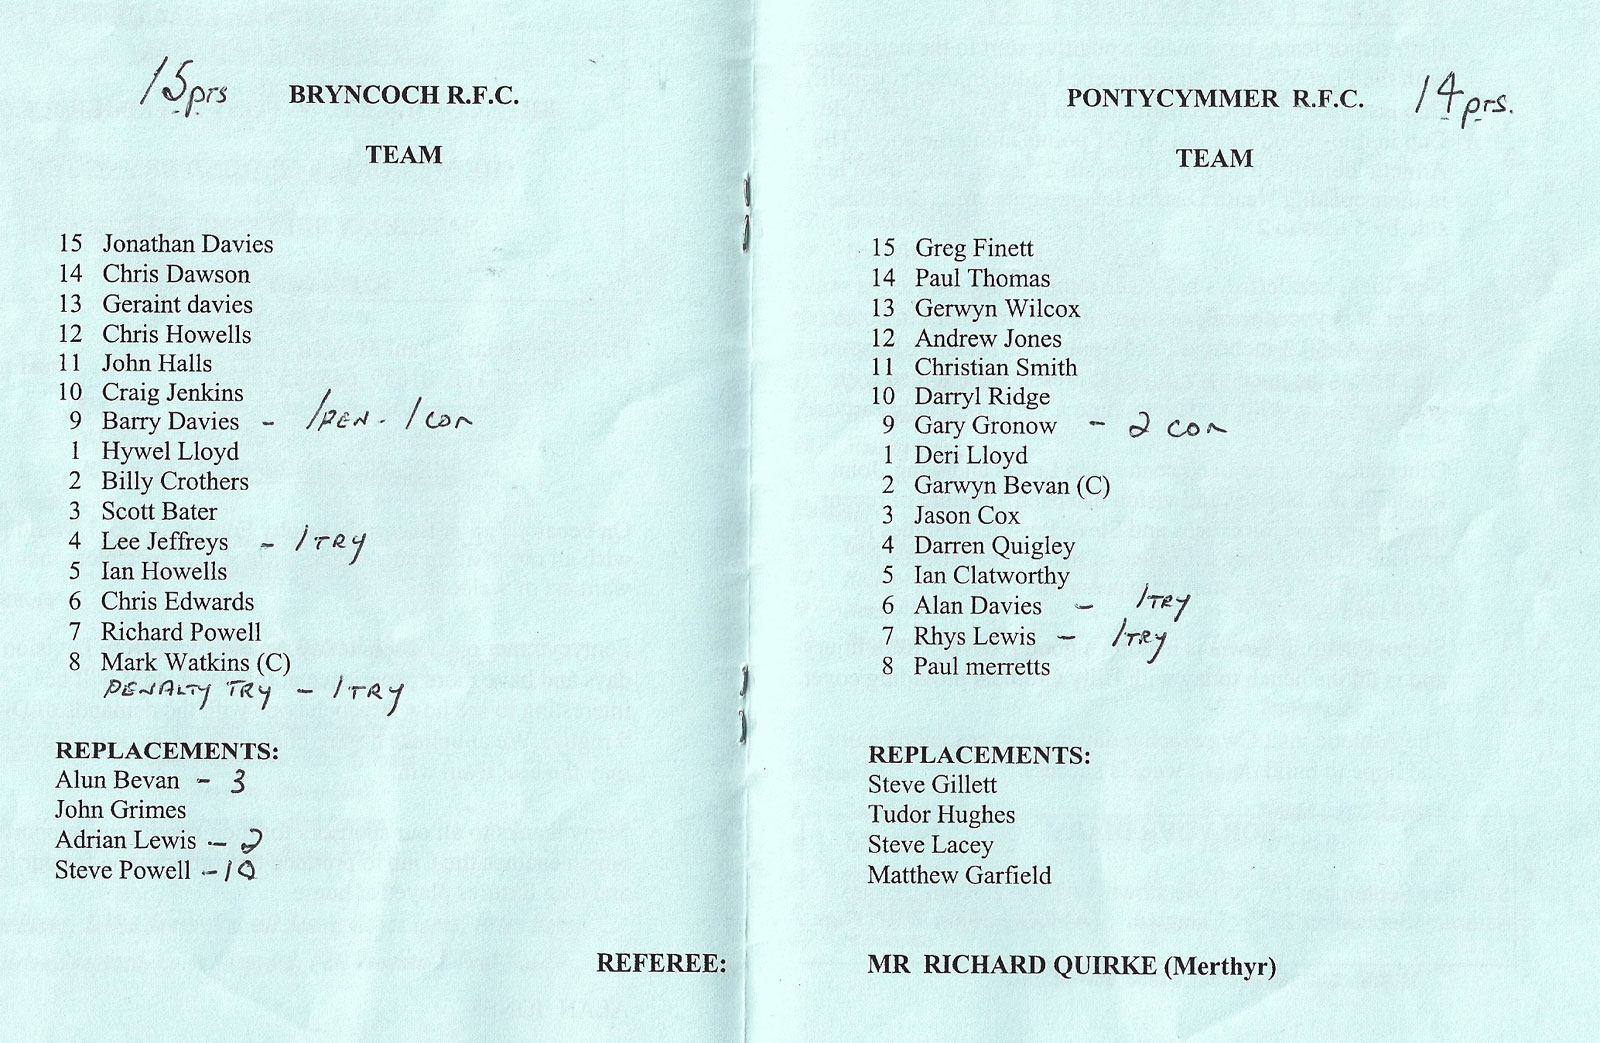 15 prs BRYNCOCH R.F.C.
TEAM
15 Jonathan Davies
14 Chris Dawson
13 Geraint davies
12 Chris Howells
11 John Halls
10 Craig Jenkins
9 Barry Davies - 1 PEN - 1 CON
1 Hywel Lloyd
2 Billy Crothers
3 Scott Bater
4 Lee Jeffreys - 1 TRY
5 Ian Howells
6 Chris Edwards
7 Richard Powell
8 Mark Watkins (C)
PENALTY TRY - 1 TRY
REPLACEMENTS:
Alun Bevan - 3
John Grimes
Adrian Lewis - 2
Steve Powell - 10
REFEREE:
PONTYCYMMER R.F.C. 14 prs.
TEAM
15 Greg Finett
14 Paul Thomas
13 Gerwyn Wilcox
12 Andrew Jones
11 Christian Smith
10 Darryl Ridge
9 Gary Gronow - 2 CON
1 Deri Lloyd
2 Garwyn Bevan (C)
3 Jason Cox
4 Darren Quigley
5 Ian Clatworthy
6 Alan Davies - 1 TRY
7 Rhys Lewis - 1 TRY
8 Paul merretts
REPLACEMENTS:
Steve Gillett
Tudor Hughes
Steve Lacey
Matthew Garfield
MR RICHARD QUIRKE (Merthyr)